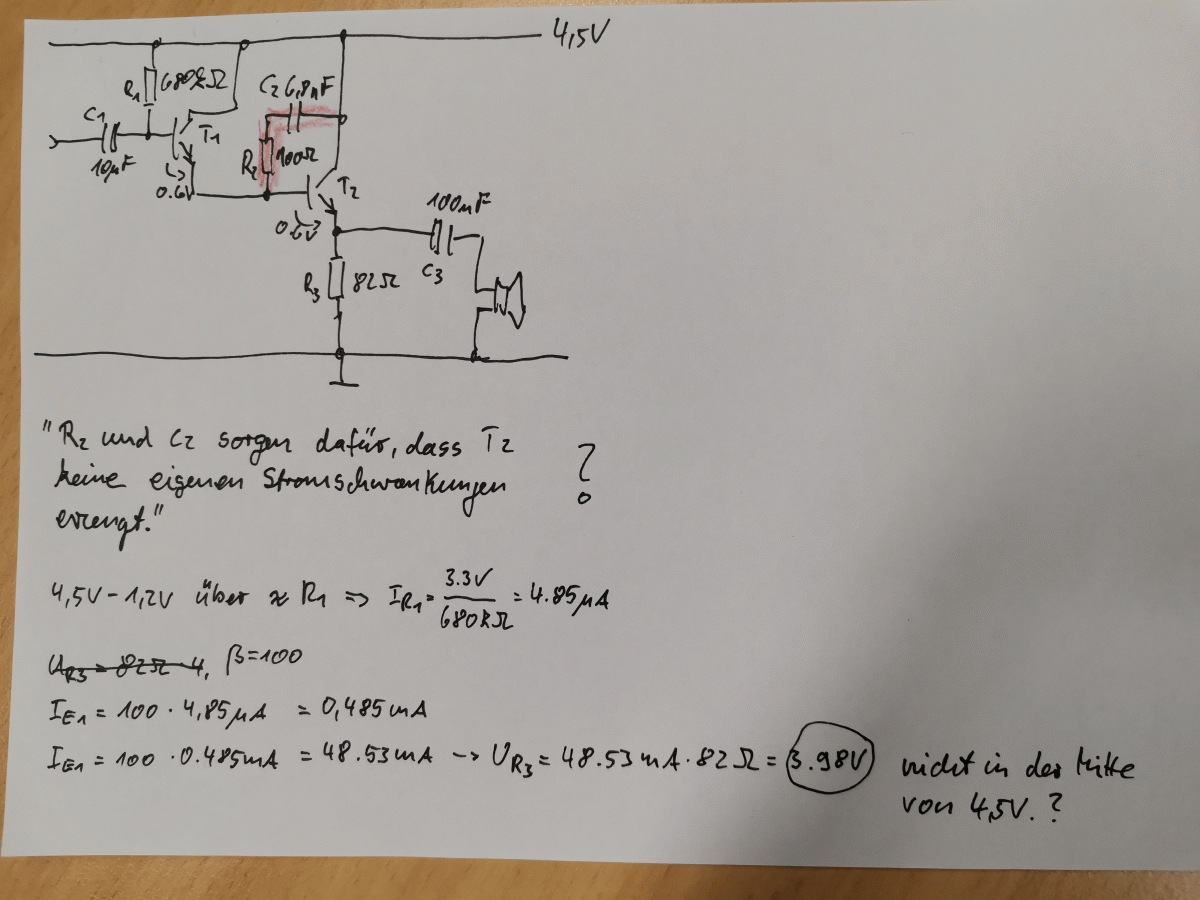 4,5V
R1 680kΩ
C2 6,8nF
C1
T1
10µF
R2 100Ω
0.6V
T2
0.6V
100µF
R3 82Ω
C3
"R2 und C2 sorgen dafür, dass T2
keine eigenen Stromschwankungen
erzeugt." ?
4,5V - 1,2V über ≈ R1 => IR1 = 3.3V / 680kΩ = 4.85µA
UR3 = 82Ω · 4, β=100
IE1 = 100 · 4,85µA = 0,485mA
IE1 = 100 · 0.485mA = 48.53mA → UR3 = 48.53mA · 82Ω = 3.98V nicht in der Mitte
von 4,5V. ?